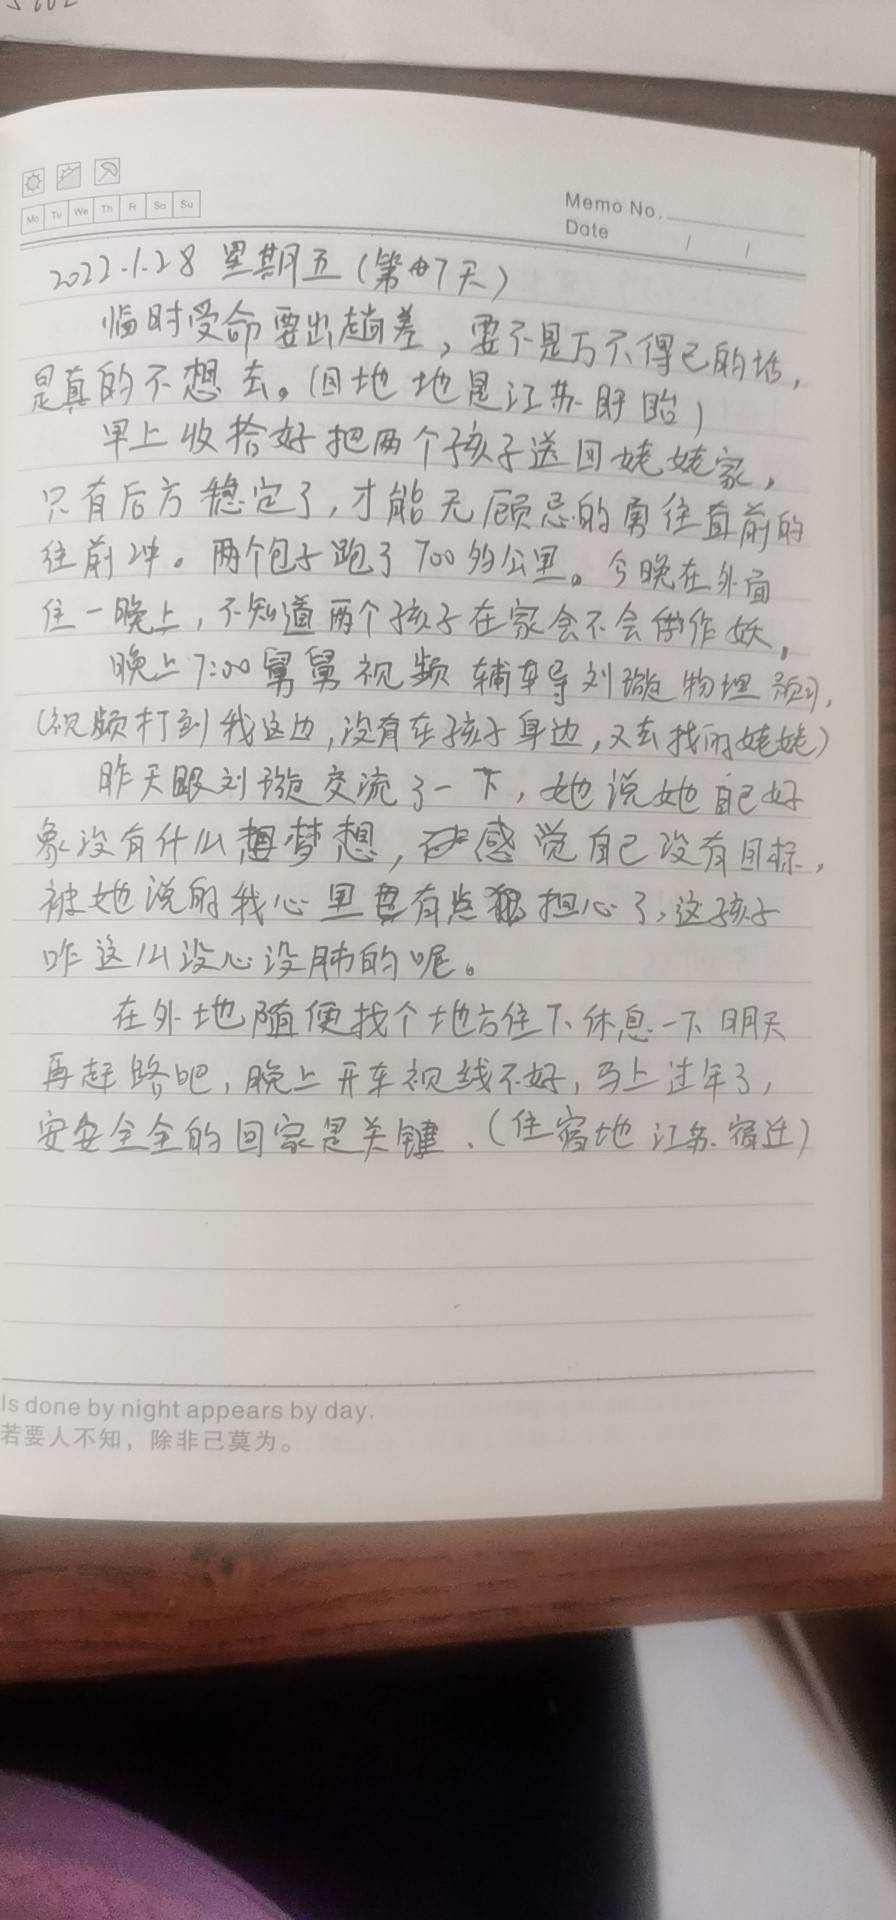 Mo Tu We Th Fr Sa Su
Memo No.
Date / /
2022.1.28 星期五(第7天)
临时受命要出趟差,要不是万不得已的话,
是真的不想去。(目地地是江苏盱眙)
早上收拾好把两个孩子送回姥姥家,
只有后方稳定了,才能无顾忌的勇往直前的
往前冲。两个包子跑了700多公里。今晚在外面
住一晚上,不知道两个孩子在家会不会作妖,
晚上7:00舅舅视频辅导刘璇物理预习,
(视频打到我这边,没有在孩子身边,又去找的姥姥)
昨天跟刘璇交流了一下,她说她自己好
象没有什么梦想,感觉自己没有目标,
被她说的我心里有点担心了,这孩子
咋这么没心没肺的呢。
在外地随便找个地方住下休息一下明天
再赶路吧,晚上开车视线不好,马上过年了,
安安全全的回家是关键.(住宿地江苏.宿迁)
Is done by night appears by day.
若要人不知,除非己莫为。